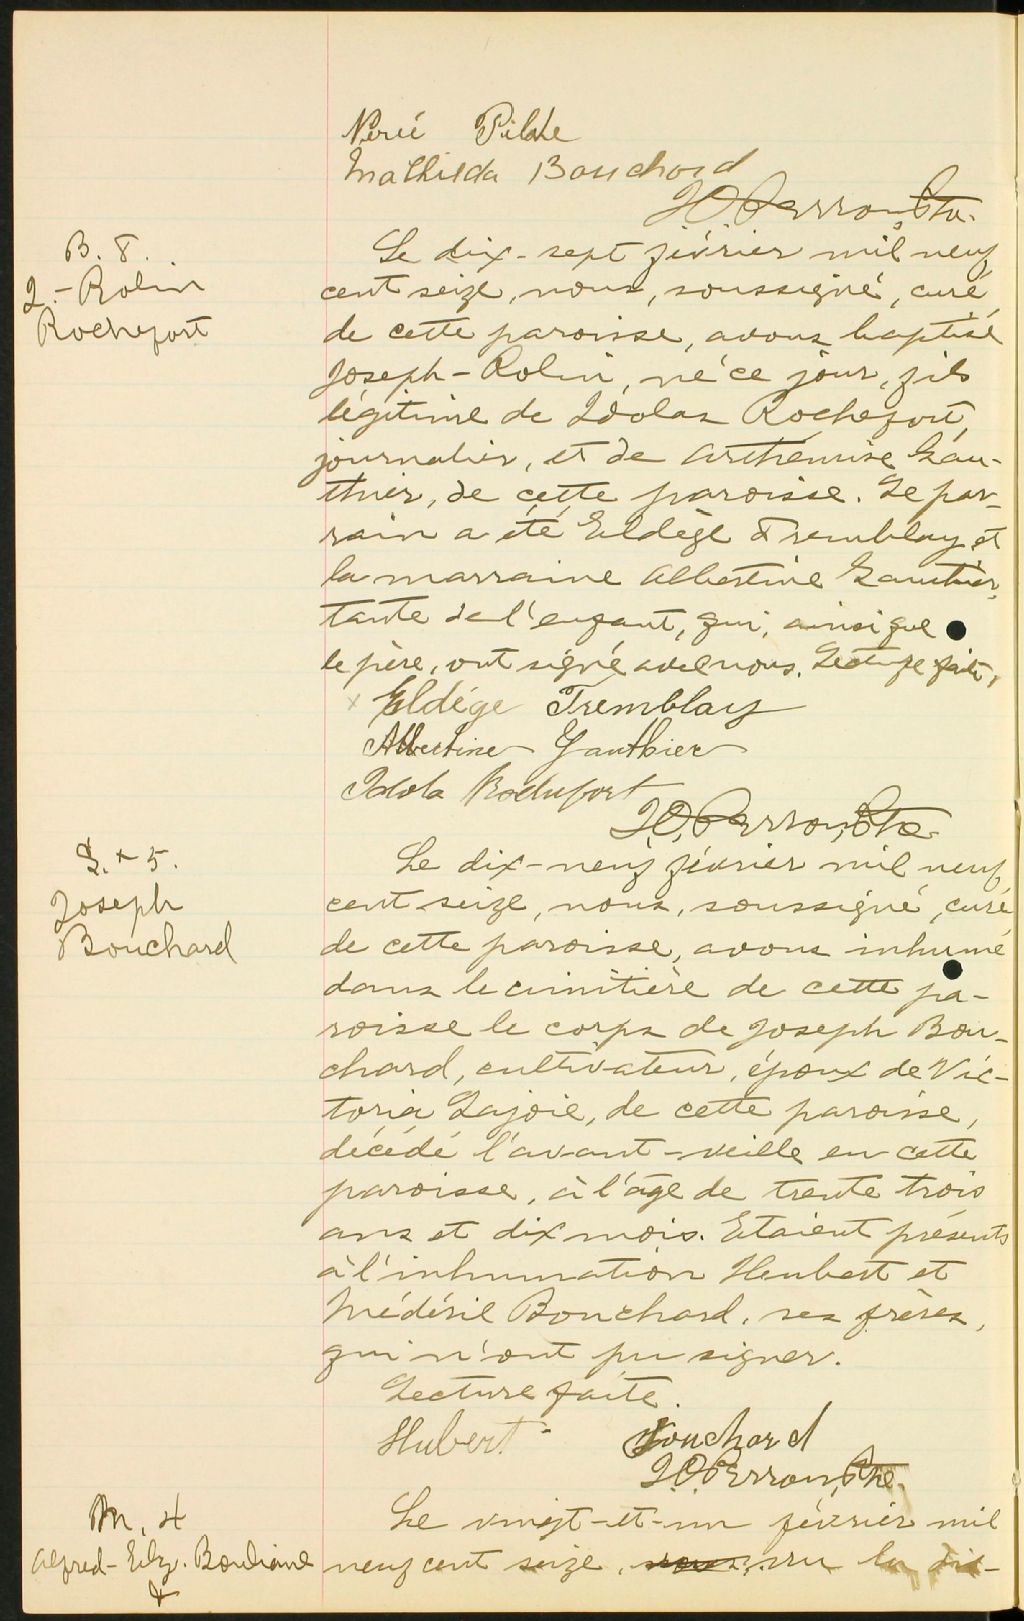 Nérié Pilote
Mathilda Bouchard
J.O. Perron, Ptre.
B. 8.
J.-Rolin
Rochefort
Le dix-sept février mil neuf
cent seize, nous, soussigné, curé
de cette paroisse, avons baptisé
Joseph-Rolin, né ce jour, fils
légitime de Idolas Rochefort,
journalier, et de Arthémise Gau-
thier, de cette paroisse. Le par-
rain a été Eldège Tremblay et
la marraine Albertine Gauthier,
tante de l'enfant, qui, ainsi que
le père, ont signé avec nous. Lecture faite,
x Eldége Tremblay
Albertine Gauthier
Idola Rochefort
J.O. Perron, Ptre.
S. + 5.
Joseph
Bouchard
Le dix-neuf février mil neuf
cent seize, nous, soussigné, curé
de cette paroisse, avons inhumé
dans le cimitière de cette pa-
roisse le corps de Joseph Bou-
chard, cultivateur, époux de Vic-
toria Lajoie, de cette paroisse,
décédé l'avant-veille en cette
paroisse, à l'âge de trente trois
ans et dix mois. Etaient présents
à l'inhumation Heubert et
Médéril Bouchard, ses frères,
qui n'ont pu signer.
Lecture faite.
Hubert Bouchard
J.O. Perron, Ptre.
M. 4
Alfred-Elz. Boudiane
&
Le vingt-et-un février mil
neuf cent seize, vu la dis-